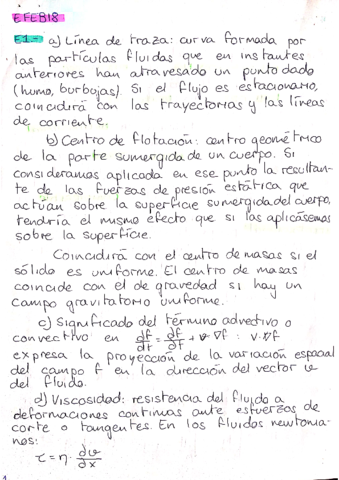 EFEB18
E1.- a) Línea de traza: curva formada por
las partículas fluidas que en instantes
anteriores han atravesado un punto dado
(humo, burbojas). Si el flujo es estacionario,
coincidirá con las trayectorias y las líneas
de corriente.
b) Centro de flotación: centro geométrico
de la parte sumergida de un cuerpo. Si
consideramos aplicada en ese punto la resultan-
te de las fuerzas de presión estática que
actúan sobre la superficie sumergida del cuerpo,
tendría el mismo efecto que si las aplicásemos
sobre la superficie.
Coincidirá con el centro de masas si el
sólido es uniforme. El centro de masas
coincide con el de gravedad si hay un
campo gravitatorio uniforme.
c) Significado del término advectivo o
convectivo en df/dt = ∂f/∂t + v·∇f : v·∇f
expresa la proyección de la variación espacial
del campo f en la dirección del vector v
del fluido.
d) Viscosidad: resistencia del fluido a
deformaciones continuas ante esfuerzos de
corte o tangentes. En los fluidos newtonia-
nos:
τ = η · ∂v/∂x